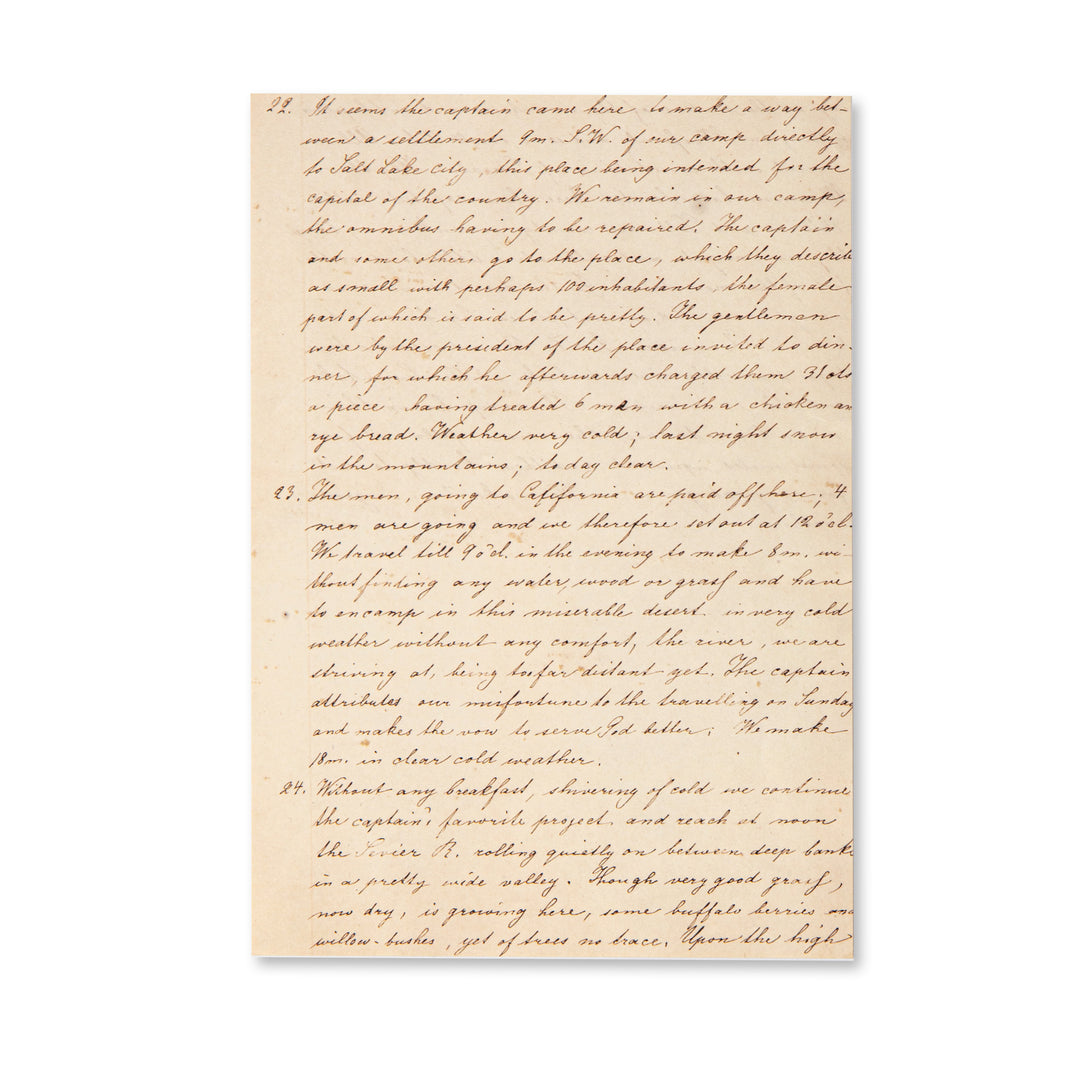 22. It seems the captain came here to make a way bet-
ween a settlement 9m. S.W. of our camp directly
to Salt Lake city, this place being intended for the
capital of the country. We remain in our camp,
the omnibus having to be repaired. The captain
and some others go to the place, which they describe
as small with perhaps 100 inhabitants, the female
part of which is said to be pretty. The gentlemen
were by the president of the place invited to din-
ner, for which he afterwards charged them 31 cts
a piece having treated 6 men with a chicken an
rye bread. Weather very cold; last night snow
in the mountains; to day clear.
23. The men, going to Calififornia are paid off here; 4
men are going and we therefore set out at 12 o'cl.
We travel till 9 o'cl. in the evening to make 8m. wi-
thout finding any water, wood or grass and have
to encamp in this miserable desert in very cold
weather without any comfort, the river, we are
striving at, being too far distant yet. The captain
attributes our misfortune to the travelling on Sunday
and makes the vow to serve God better; We make
18m. in clear cold weather.
24. Without any breakfast, shivering of cold we continue
the captain's favorite project and reach at noon
the Sevier R. rolling quietly on between deep banks
in a pretty wide valley. Though very good grass,
now dry, is growing here, some buffalo berries and
willow-bushes, yet of trees no trace. Upon the high